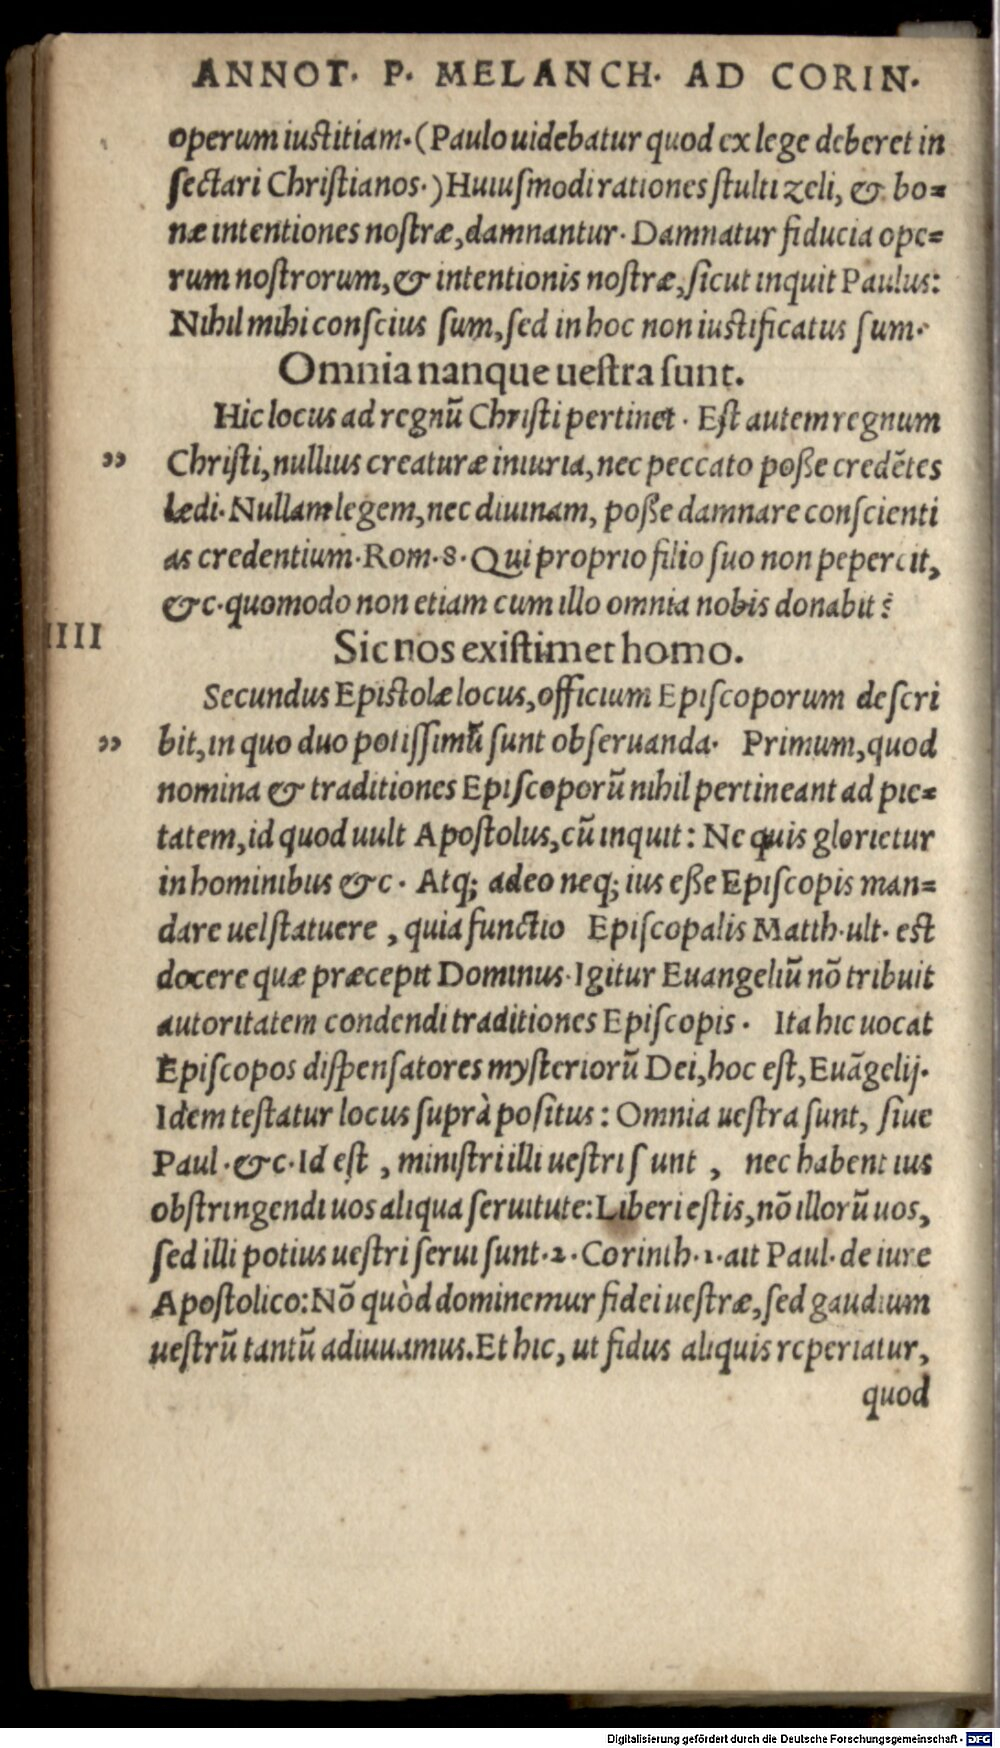 ANNOT. P. MELANCH. AD CORIN.
operum iustitiam. (Paulo uidebatur quod ex lege deberet in
sectari Christianos.) Huiusmodi rationes stulti zeli, & bo=
næ intentiones nostræ, damnantur. Damnatur fiducia ope=
rum nostrorum, & intentionis nostræ, sicut inquit Paulus:
Nihil mihi conscius sum, sed in hoc non iustificatus sum.
Omnia nanque uestra sunt.
Hic locus ad regnū Christi pertinet. Est autem regnum
„ Christi, nullius creaturæ iniuria, nec peccato poße credētes
lædi. Nullam legem, nec diuinam, poße damnare conscienti
as credentium. Rom. 8. Qui proprio filio suo non pepercit,
&c. quomodo non etiam cum illo omnia nobis donabit?
IIII Sic nos existimet homo.
Secundus Epistolæ locus, officium Episcoporum descri
„ bit, in quo duo potissimū sunt obseruanda. Primum, quod
nomina & traditiones Episcoporū nihil pertineant ad pie=
tatem, id quod uult Apostolus, cū inquit: Ne quis glorietur
in hominibus &c. Atq; adeo neq; ius eße Episcopis man=
dare uel statuere, quia functio Episcopalis Matth. ult. est
docere quæ præcepit Dominus. Igitur Euangeliū nō tribuit
autoritatem condendi traditiones Episcopis. Ita hic uocat
Episcopos dispensatores mysteriorū Dei, hoc est, Euāgelij.
Idem testatur locus suprà positus: Omnia uestra sunt, siue
Paul. &c. Id est, ministri illi uestri sunt, nec habent ius
obstringendi uos aliqua seruitute: Liberi estis, nō illorū uos,
sed illi potius uestri serui sunt. 2. Corinth. 1. ait Paul. de iure
Apostolico: Nō quòd dominemur fidei uestræ, sed gaudium
uestrū tantū adiuuamus. Et hic, ut fidus aliquis reperiatur,
quod
Digitalisierung gefördert durch die Deutsche Forschungsgemeinschaft - DFG